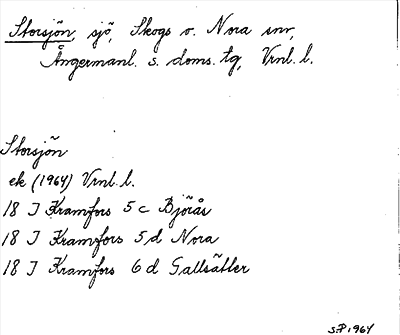 Storsjön, sjö, Skogs o. Nora snr,
Ångermanl. s. doms. tg, Vrnl. l.
Storsjön
ek (1964) Vrnl. l.
18 I Kramfors 5 c Björås
18 I Kramfors 5 d Nora
18 I Kramfors 6 d Gallsätter
S.P 1964